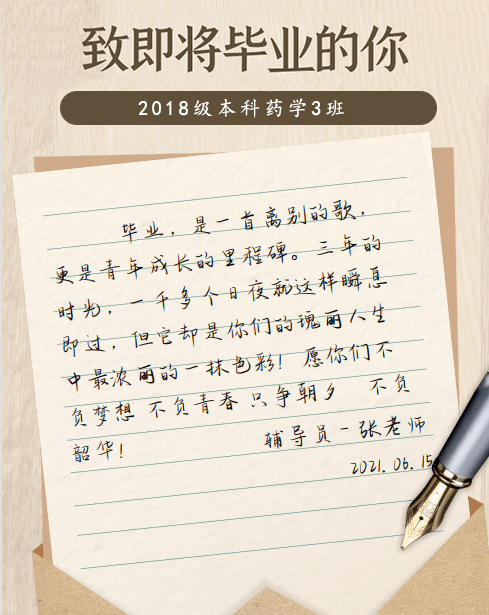 致即将毕业的你
2018级本科药学3班
毕业，是一首离别的歌，
更是青年成长的里程碑。三年的
时光，一千多个日夜就这样瞬息
即过，但它却是你们的瑰丽人生
中最浓丽的一抹色彩！愿你们不
负梦想 不负青春 只争朝夕 不负
韶华！
辅导员-张老师
2021.06.15